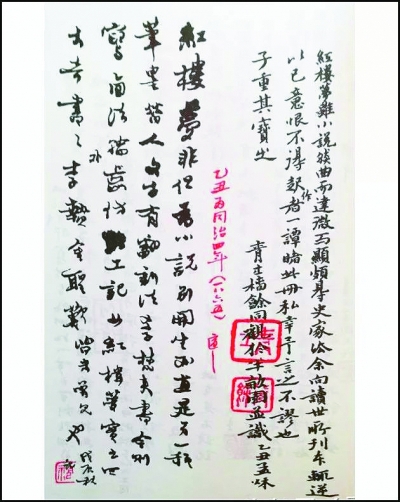 紅樓夢雖小說然曲而達微而顯頗得史家法余向讀世所刊本輒逆
以己意恨不得起作者一譚睹此冊私幸予言之不謬也
子重其寶之
青士椿餘同觀於半畝園並識乙丑孟秋
乙丑為同治四年(一八六五)適
紅樓夢非但為小說別開生面直是另一種
筆墨昔人文字有翻新法學梵夾書今則
寫西法輪齒仿考工記如紅樓夢實出四
大奇書之外李贄金聖歎皆未曾見也戊辰秋記